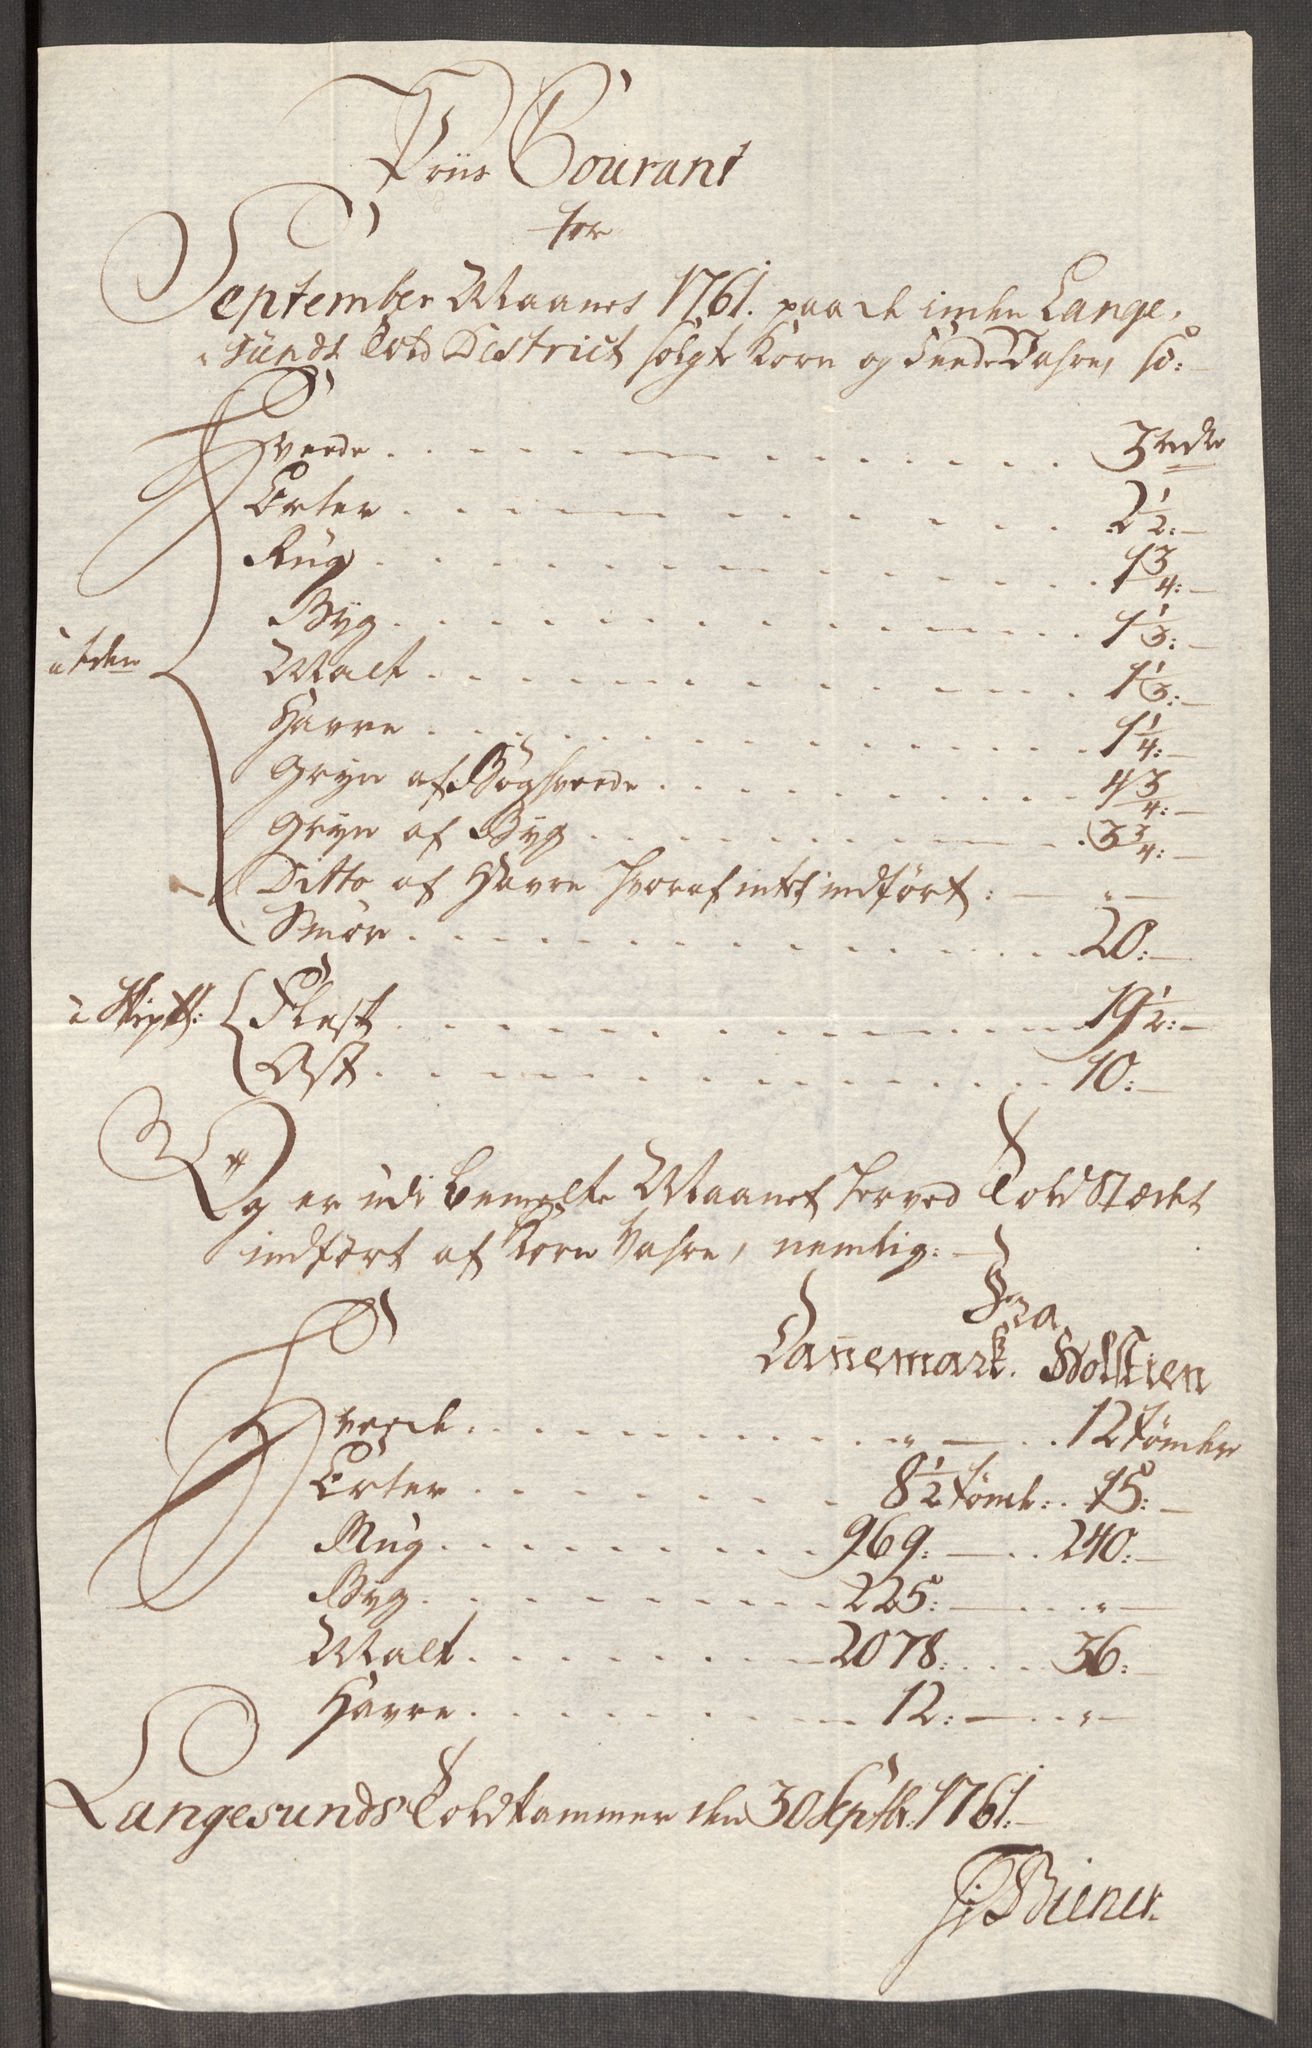 Priis Courant
for
September Maanet 1761. paa de inden Lange-
sunds Told District solgte Korn og Feede Vahre, so:
Hveede 3 rdlr
Erter 2 1/2:
Rug 1 3/4:
Byg 1 1/3:
à tøn Malt 1 1/3:
Havre 1 1/4:
Gryn af Boghveede 4 3/4:
Gryn af Byg 3 3/4:
Ditto af Havre hvoraf intet indført: "
Smør 20:
à Skip℔: Flesk 19 1/2:
Ost 10:
Og er udi bemelte Maanet herved Told Stædet
indført af Korn Vahre, nemlig:
Fra
Danemark. Holstien
Hveede " 12 tønder
Erter 8 1/2 tønd: 15:
Rug 969: 240:
Byg 225: "
Malt 2078: 36:
Havre 12: "
Langesunds Toldkammer den 30 Septbr: 1761.